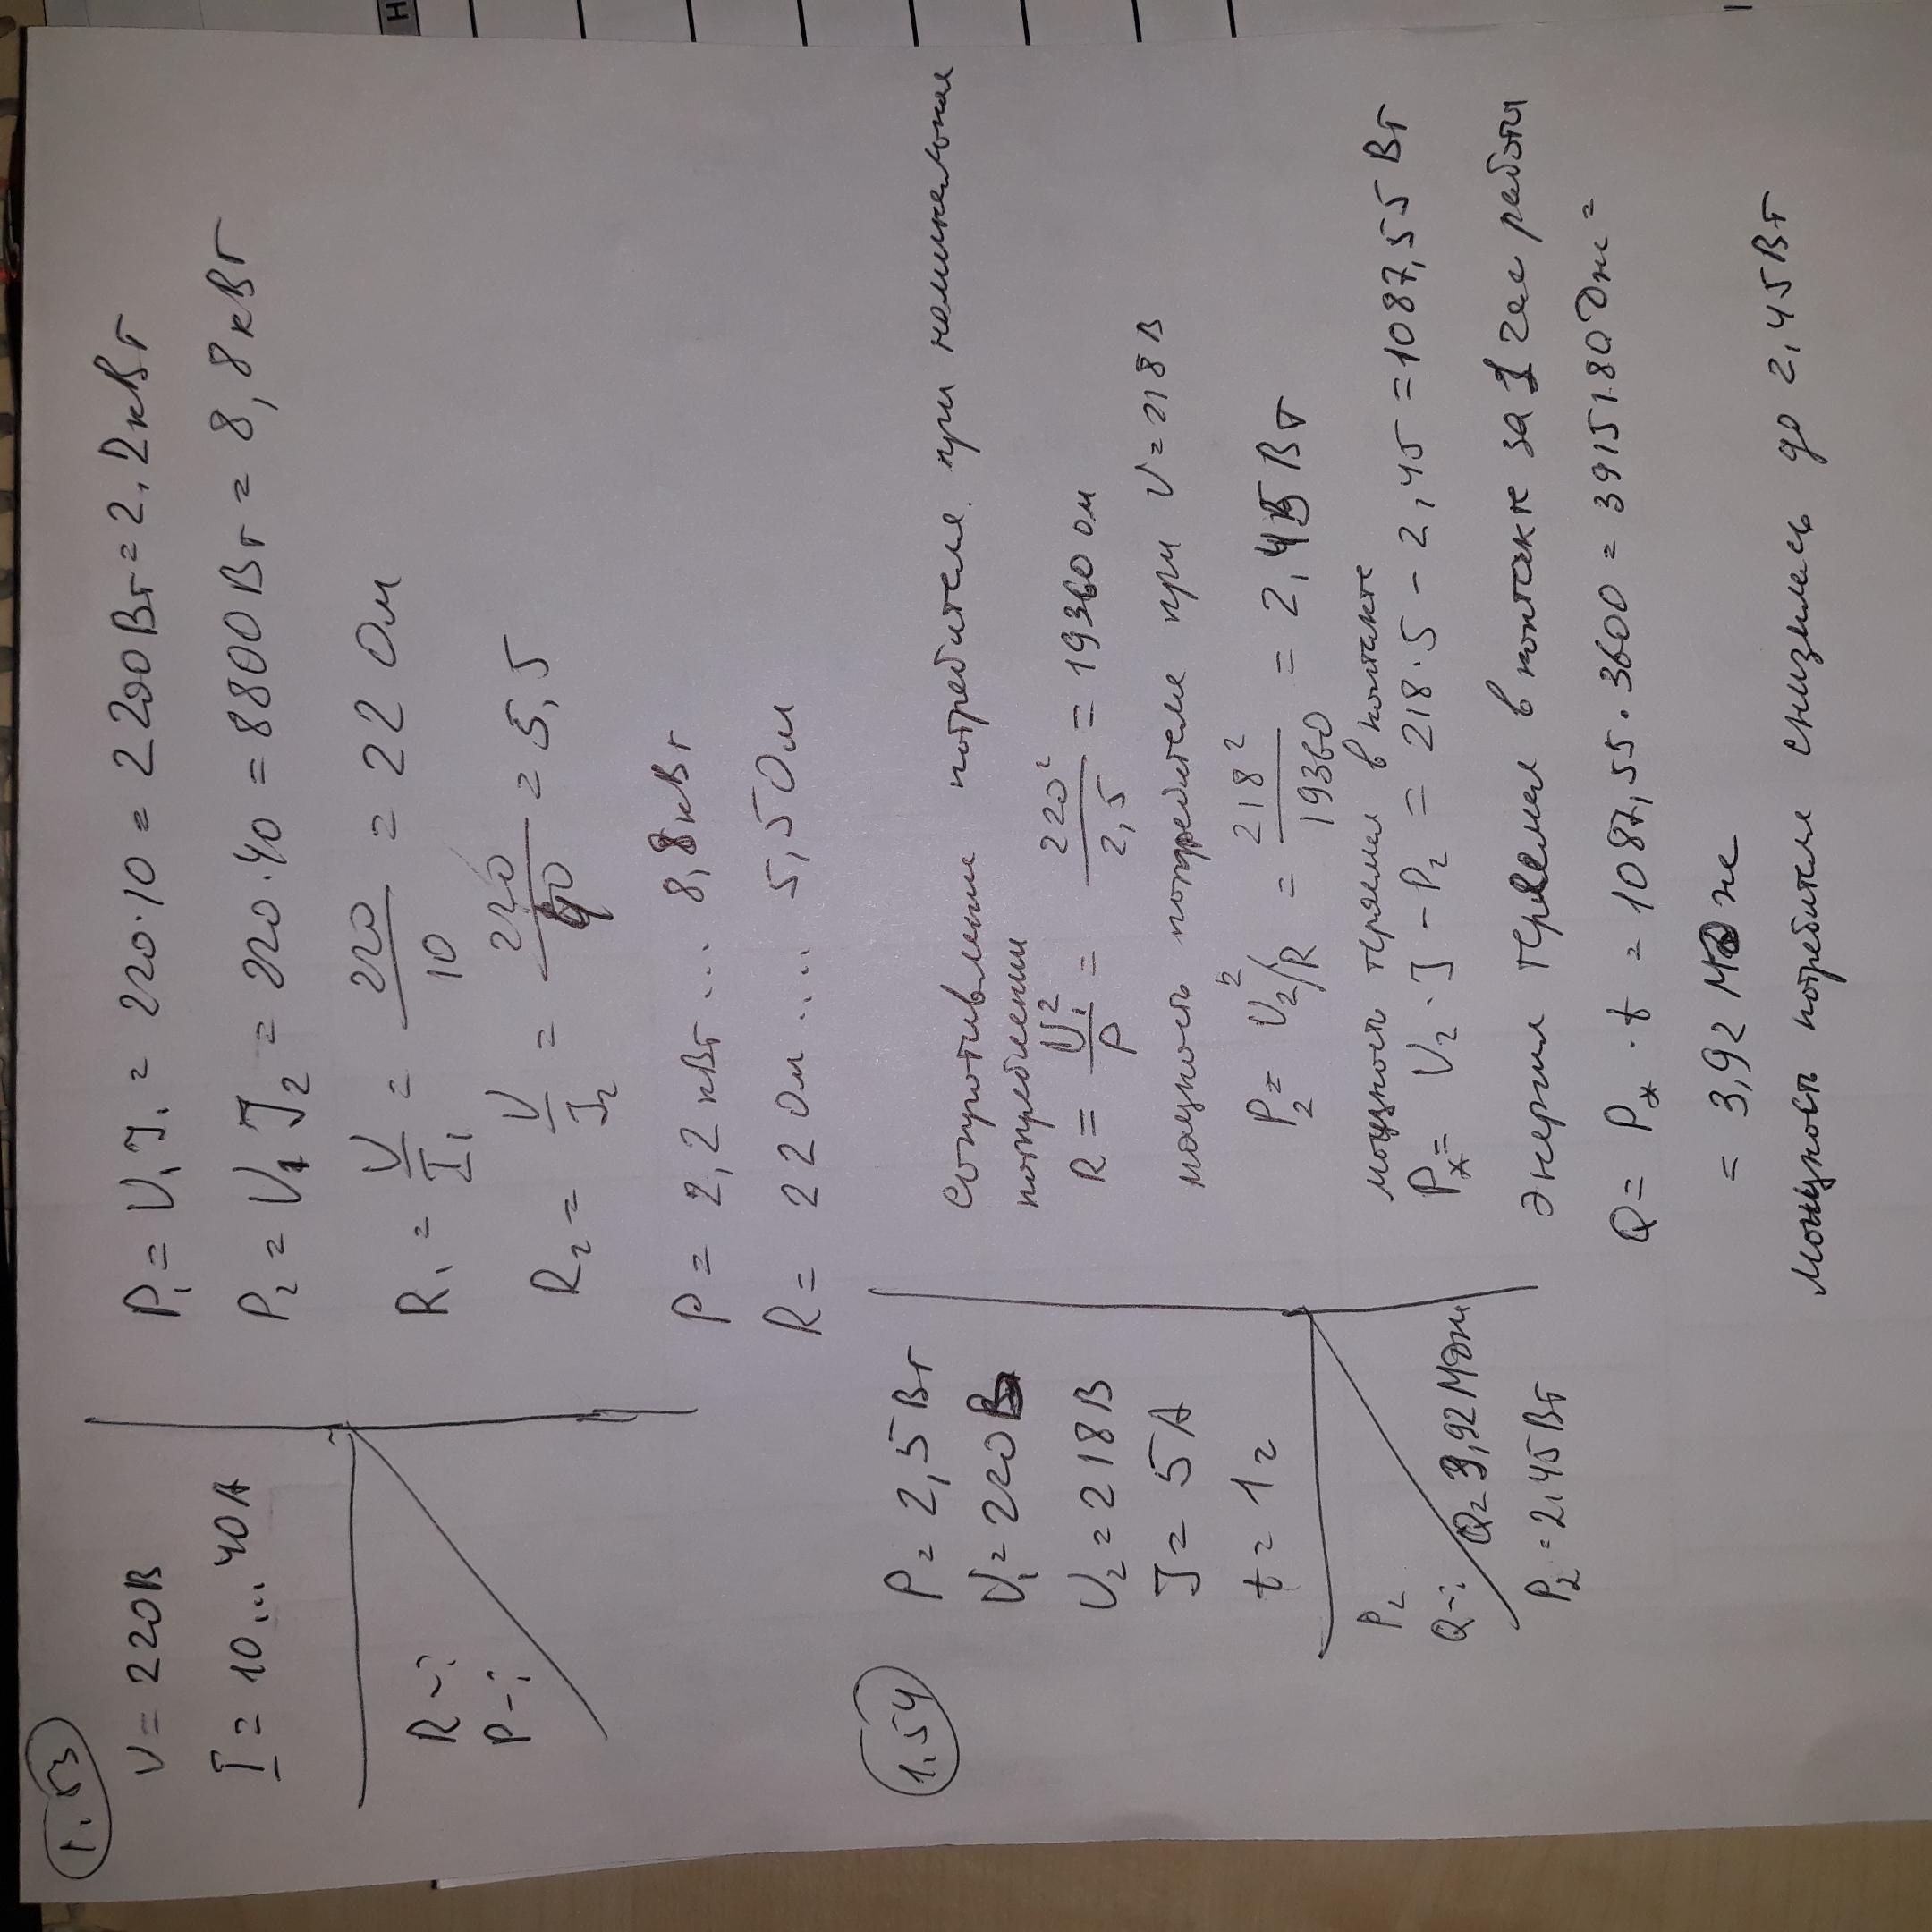 1.53
U = 220В
I = 10...40А
R - ?
P - ?
P₁ = U₁ I₁ = 220·10 = 2200Вт = 2,2кВт
P₂ = U₁ I₂ = 220·40 = 8800Вт = 8,8кВт
R₁ = U/I₁ = 220/10 = 22 Ом
R₂ = U/I₂ = 220/40 = 5,5
P = 2,2 кВт ... 8,8кВт
R = 22 Ом .... 5,5 Ом
1.54
P = 2,5Вт
U₁ = 220В
U₂ = 218В
I = 5А
t = 1г
P₂
Q - ?
Q = 3,92МДж
P₂ = 2,45Вт
Сопротивление потребителя при номинальном
потреблении
R = U₁²/P = 220²/2,5 = 19360 Ом
мощность потребителя при U = 218 В
P₂ = U₂²/R = 218²/19360 = 2,45 Вт
мощность теряемая в контакте
Pₓ = U₂ · I - P₂ = 218·5 - 2,45 = 1087,55 Вт
Энергия теряемая в контакте за 1 час работы
Q = Pₓ · t = 1087,55·3600 = 3915180 Дж =
= 3,92 МДж
Мощность потребителя снизилась до 2,45Вт